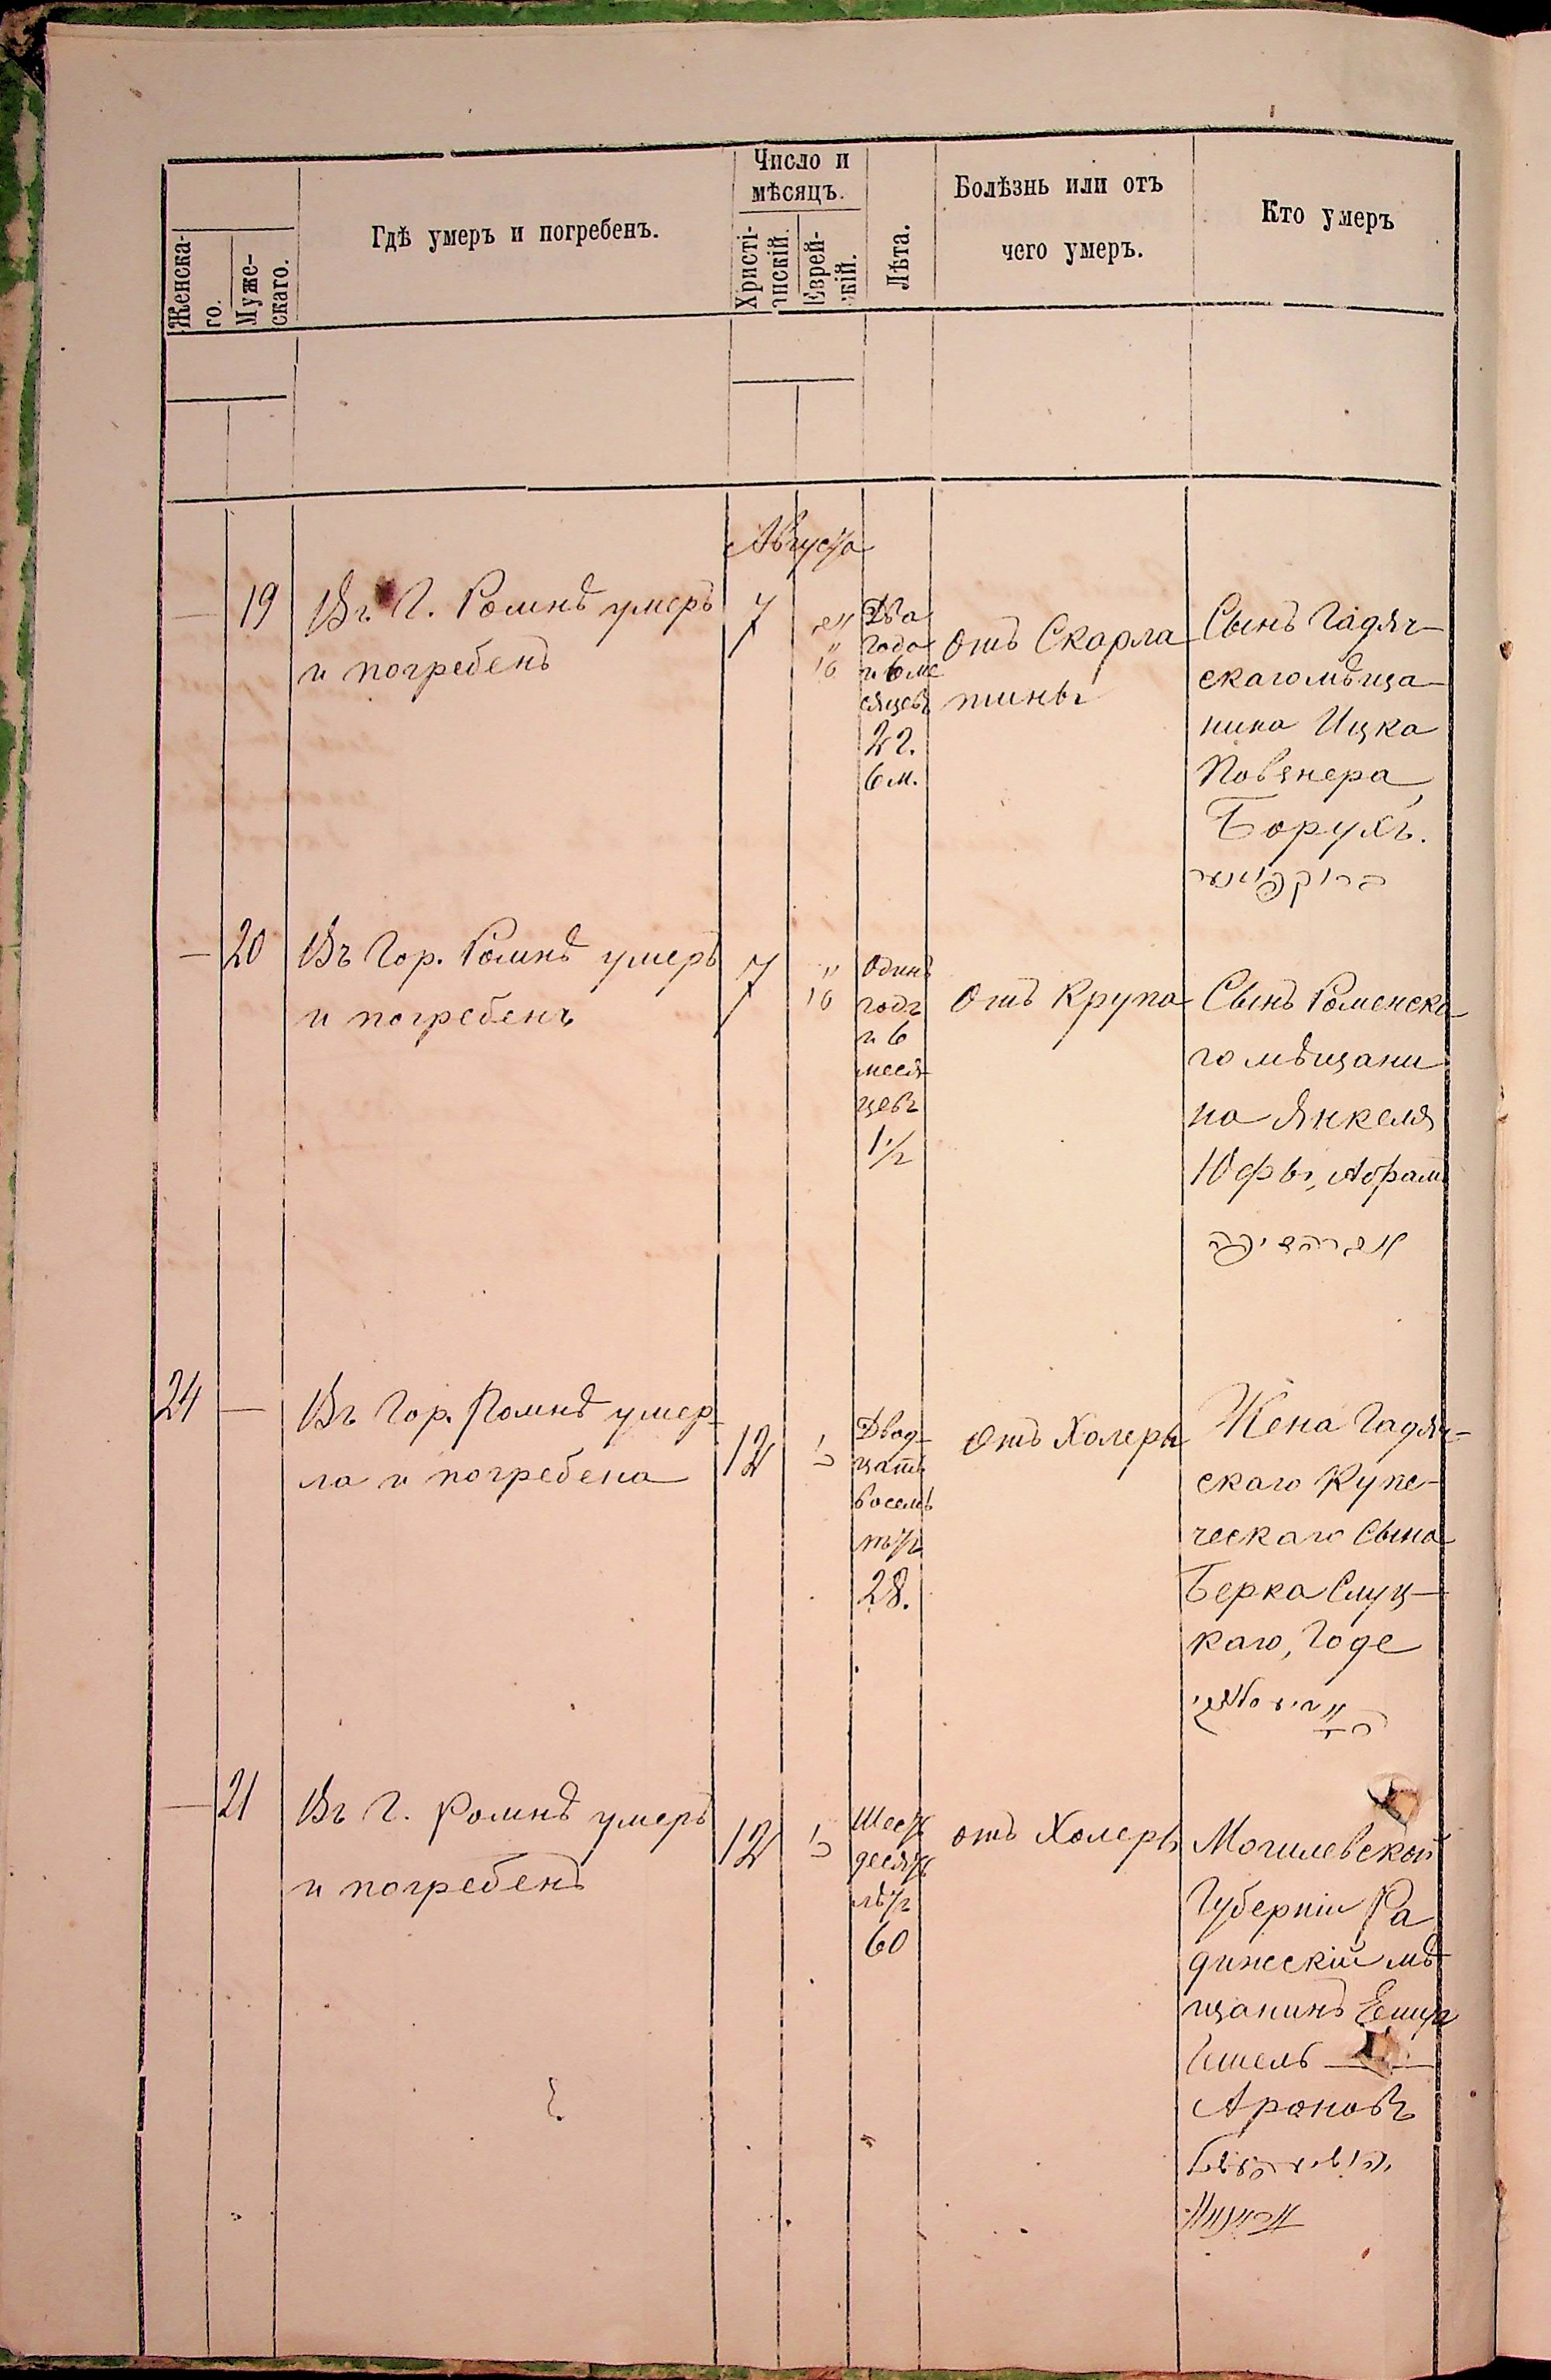 Число и
мѣсяцъ.
Женска-
го.
Муже-
скаго.
Гдѣ умеръ и погребенъ.
Христі-
анскій.
Еврей-
скій.
Лѣта.
Болѣзнь или отъ
чего умеръ.
Кто умеръ
Августа
— 19
Въ Г. Ромнѣ умеръ
и погребенъ
7
16
Два
года
и 6 ме
сяцевъ
2 г.
6 м.
Отъ Скарла
тины
Сынъ Гадяч-
скаго мѣща-
нина Ицка
Повзнера
Борухъ.
— 20
Въ Гор. Ромнѣ умеръ
и погребенъ
7
" 16
Одинъ
годъ
и 6
меся
цевъ
1 1/2
Отъ Крупа
Сынъ Роменска
го мѣщани
на Янкеля
Юфы, Абрам
24 —
Въ Гор. Ромнѣ умер-
ла и погребена
12
Двад-
цать
восемь
лѣтъ
28.
Отъ Холеры
Жена Гадяч-
скаго Купе-
ческаго Сына
Берка Слуц-
каго, Годе
— 21
Въ Г. Ромнѣ умеръ
и погребенъ
12
Шесть
десять
лѣтъ
60
отъ Холеры
Могилевской
Губерніи Ра
мѣ
щанинъ
Ароновъ